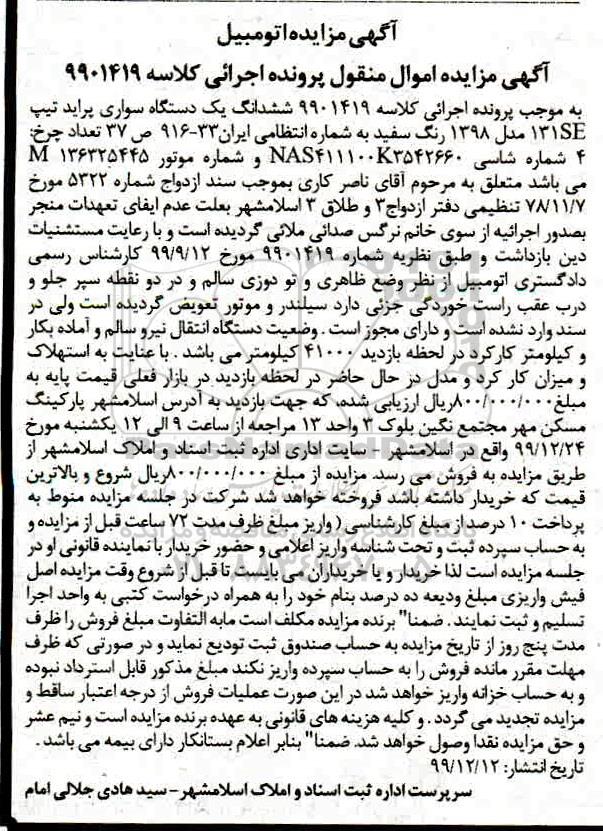 آگهی مزایده اتومبیل
آگهی مزایده اموال منقول پرونده اجرائی کلاسه ۹۹۰۱۴۱۹
به موجب پرونده اجرائی کلاسه ۹۹۰۱۴۱۹ ششدانگ یک دستگاه سواری پراید تیپ
۱۳۱SE مدل ۱۳۹۸ رنگ سفید به شماره انتظامی ایران۳۳-۹۱۶ ص ۳۷ تعداد چرخ:
۴ شماره شاسی NAS۴۱۱۱۰۰K۳۵۴۲۶۶۰ و شماره موتور M ۱۳۶۳۲۵۴۴۵
می باشد متعلق به مرحوم آقای ناصر کاری بموجب سند ازدواج شماره ۵۳۲۲ مورخ
۷۸/۱۱/۷ تنظیمی دفتر ازدواج۳ و طلاق ۳ اسلامشهر بعلت عدم ایفای تعهدات منجر
بصدور اجرائیه از سوی خانم نرگس صدائی ملائی گردیده است و با رعایت مستثنیات
دین بازداشت و طبق نظریه شماره ۹۹۰۱۴۱۹ مورخ ۹۹/۹/۱۲ کارشناس رسمی
دادگستری اتومبیل از نظر وضع ظاهری و تو دوزی سالم و در دو نقطه سپر جلو و
درب عقب راست خوردگی جزئی دارد سیلندر و موتور تعویض گردیده است ولی در
سند وارد نشده است و دارای مجوز است . وضعیت دستگاه انتقال نیرو سالم و آماده بکار
و کیلومتر کارکرد در لحظه بازدید ۴۱۰۰۰ کیلومتر می باشد . با عنایت به استهلاک
و میزان کار کرد و مدل در حال حاضر در لحظه بازدید در بازار فعلی قیمت پایه به
مبلغ۸۰۰/۰۰۰/۰۰۰ریال ارزیابی شده، که جهت بازدید به آدرس اسلامشهر پارکینگ
مسکن مهر مجتمع نگین بلوک ۳ واحد ۱۳ مراجعه از ساعت ۹ الی ۱۲ یکشنبه مورخ
۹۹/۱۲/۲۴ واقع در اسلامشهر - سایت اداری اداره ثبت اسناد و املاک اسلامشهر از
طریق مزایده به فروش می رسد. مزایده از مبلغ ۸۰۰/۰۰۰/۰۰۰ریال شروع و بالاترین
قیمت که خریدار داشته باشد فروخته خواهد شد شرکت در جلسه مزایده منوط به
پرداخت ۱۰ درصد از مبلغ کارشناسی ( واریز مبلغ ظرف مدت ۷۲ ساعت قبل از مزایده و
به حساب سپرده ثبت و تحت شناسه واریز اعلامی و حضور خریدار یا نماینده قانونی او در
جلسه مزایده است لذا خریدار و یا خریداران می بایست تا قبل از شروع وقت مزایده اصل
فیش واریزی مبلغ ودیعه ده درصد بنام خود را به همراه درخواست کتبی به واحد اجرا
تسلیم و ثبت نمایند . ضمنا" برنده مزایده مکلف است مابه التفاوت مبلغ فروش را ظرف
مدت پنج روز از تاریخ مزایده به حساب صندوق ثبت تودیع نماید و در صورتی که ظرف
مهلت مقرر مانده فروش را به حساب سپرده واریز نکند مبلغ مذکور قابل استرداد نبوده
و به حساب خزانه واریز خواهد شد در این صورت عملیات فروش از درجه اعتبار ساقط و
مزایده تجدید می گردد . و کلیه هزینه های قانونی به عهده برنده مزایده است و نیم عشر
و حق مزایده نقدا وصول خواهد شد. ضمنا" بنابر اعلام بستانکار دارای بیمه می باشد .
تاریخ انتشار: ۹۹/۱۲/۱۲
سرپرست اداره ثبت اسناد و املاک اسلامشهر- سید هادی جلالی امام